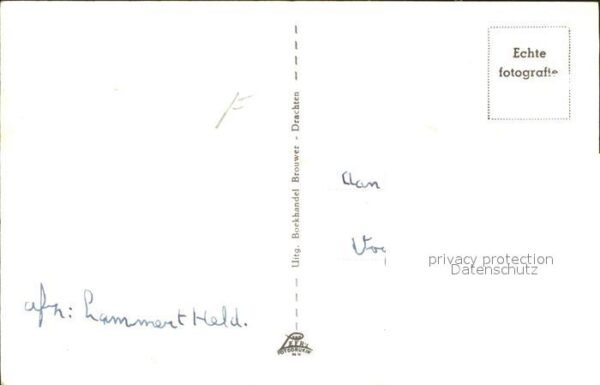 Echte
fotografie
Uitg. Boekhandel Brouwer - Drachten
Aan
privacy protection
Datenschutz
afz: Lammert Held.